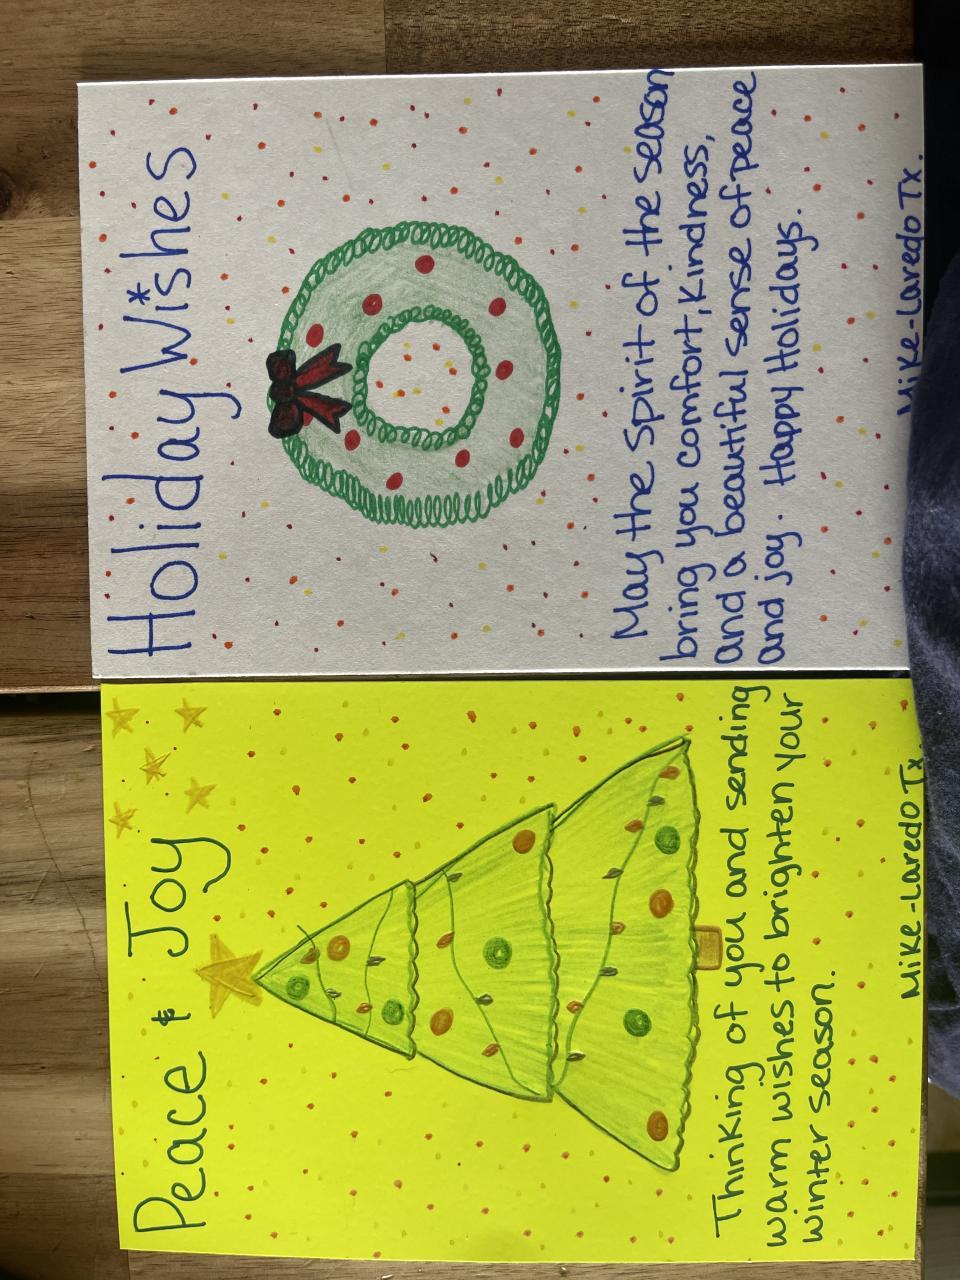 Holiday Wishes
May the Spirit of the season
bring you comfort, Kindness,
and a beautiful sense of peace
and joy. Happy Holidays.
Mike-Laredo Tx.
Peace & Joy
Thinking of you and sending
warm wishes to brighten your
winter season.
Mike-Laredo Tx.